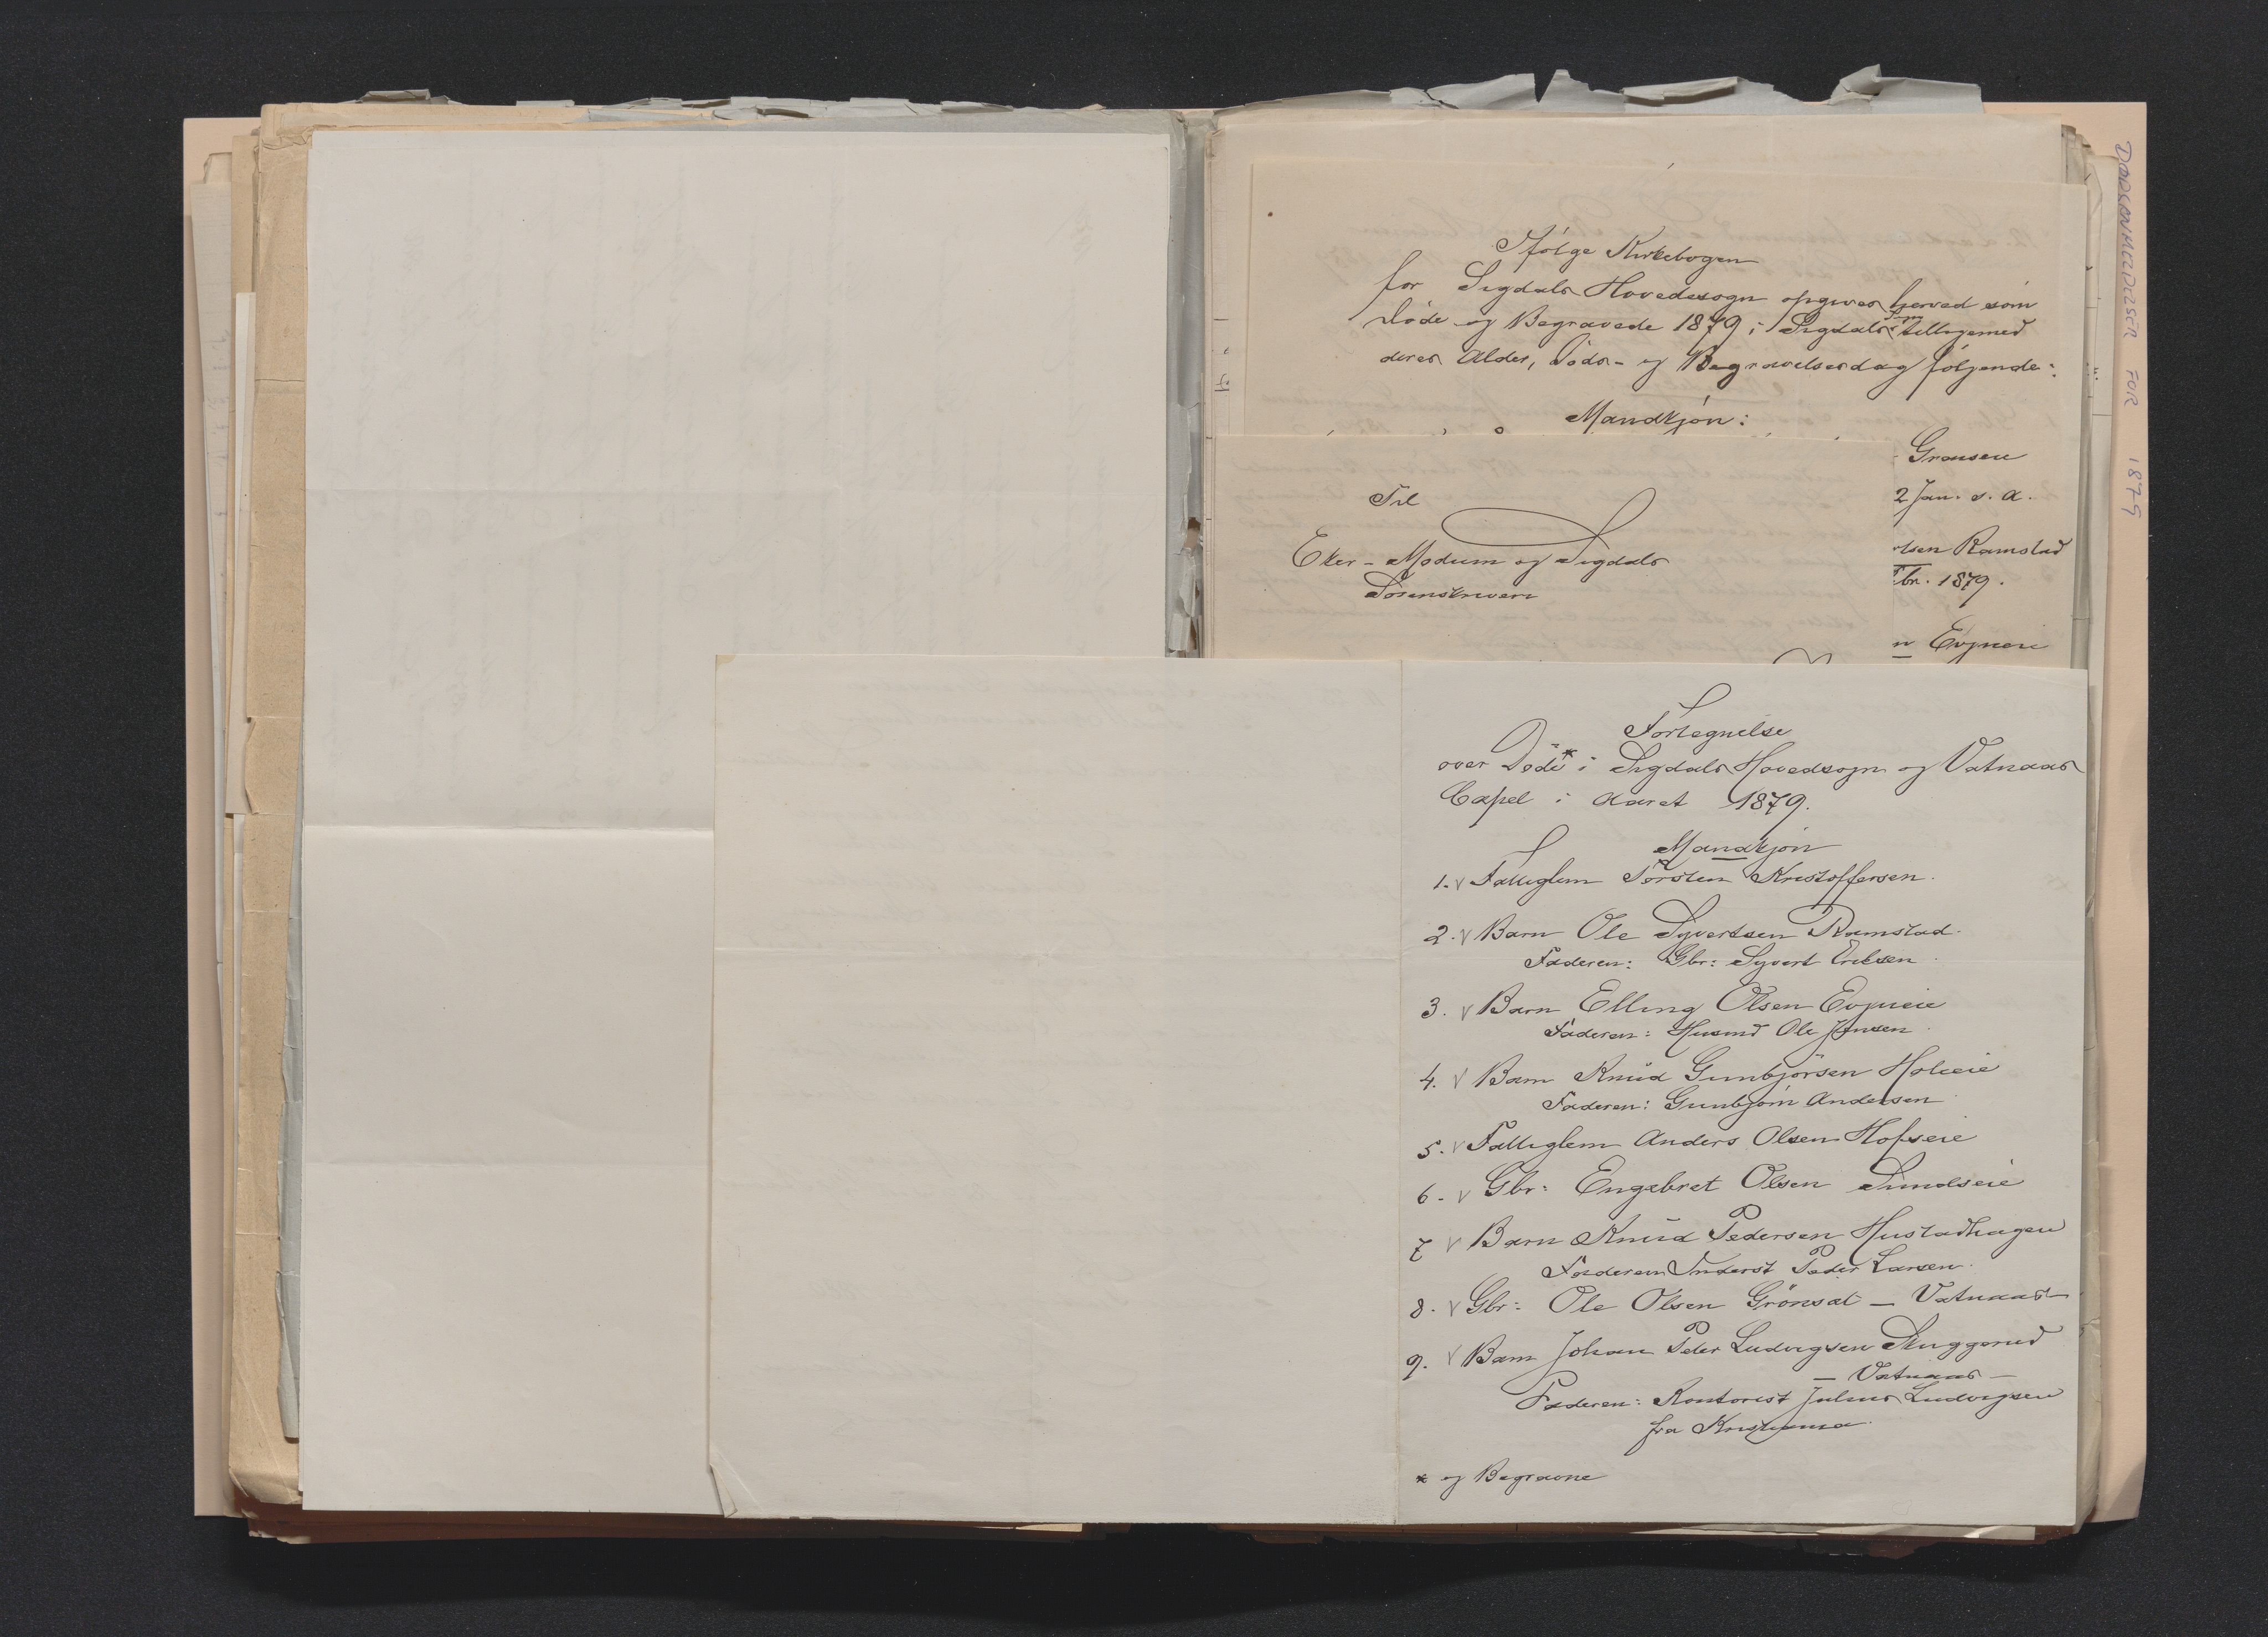 Ifølge Kirkebogen
for Sigdals Hovedsogn opgives herved som
Døde og Begravede 1879 i Sigdals tilligemed
deres Alder, Døds- og Begravelsesdag følgende:
Mandkjøn:
Gransen
2 Jan. s. a.
lsen Ramstad
Fbr. 1879.
n Evjueie
Til
Eker-Modum og Sigdals
Sorenskriveri
Fortegnelse
over Døde* i Sigdals Hovedsogn og Vatnaas
Capel i Aaret 1879.
Mandkjøn
1. v Fattiglem Torsten Kristoffersen.
2. v Barn Ole Syvertsen Ramstad.
Faderen: Gbr: Syvert Eriksen.
3. v Barn Elling Olsen Evjueie
Faderen: Husmd Ole Jensen.
4. v Barn Knud Gunbjørsen Holieie
Faderen: Gunbjørn Andersen
5. v Fattiglem Anders Olsen Hofseie
6. v Gbr: Engebret Olsen Sundseie
7 v Barn Knud Pedersen Hustadhagen
Faderen Inderst Peder Larsen.
8. v Gbr: Ole Olsen Grønsat — Vatnaas —
9. v Barn Johan Peder Ludvigsen Skuggerud
— Vatnaas —
Faderen: Kontorist Julius Ludvigsen
fra Kristiania.
* og Begravne
DØDSANMELDELSER FOR 1879